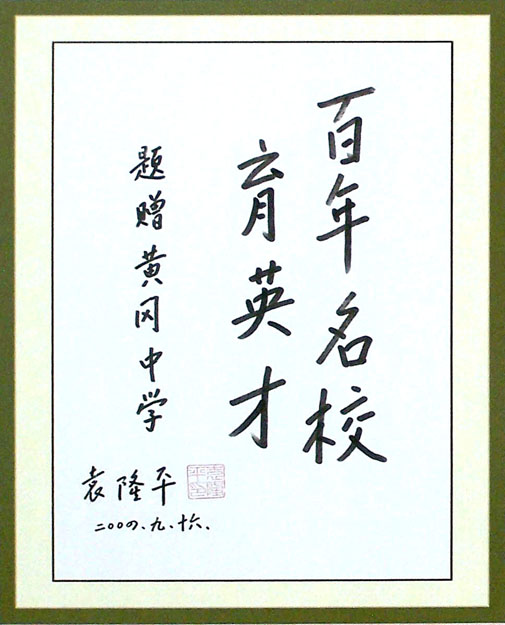 百年名校
育英才
题赠黄冈中学
袁隆平
二〇〇四.九.十六.